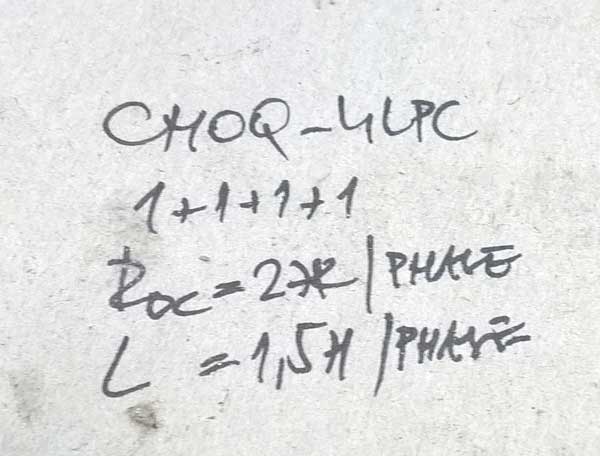 CHOQ-4LPC
1+1+1+1
RDC = 27R/PHASE
L = 1,5H/PHASE